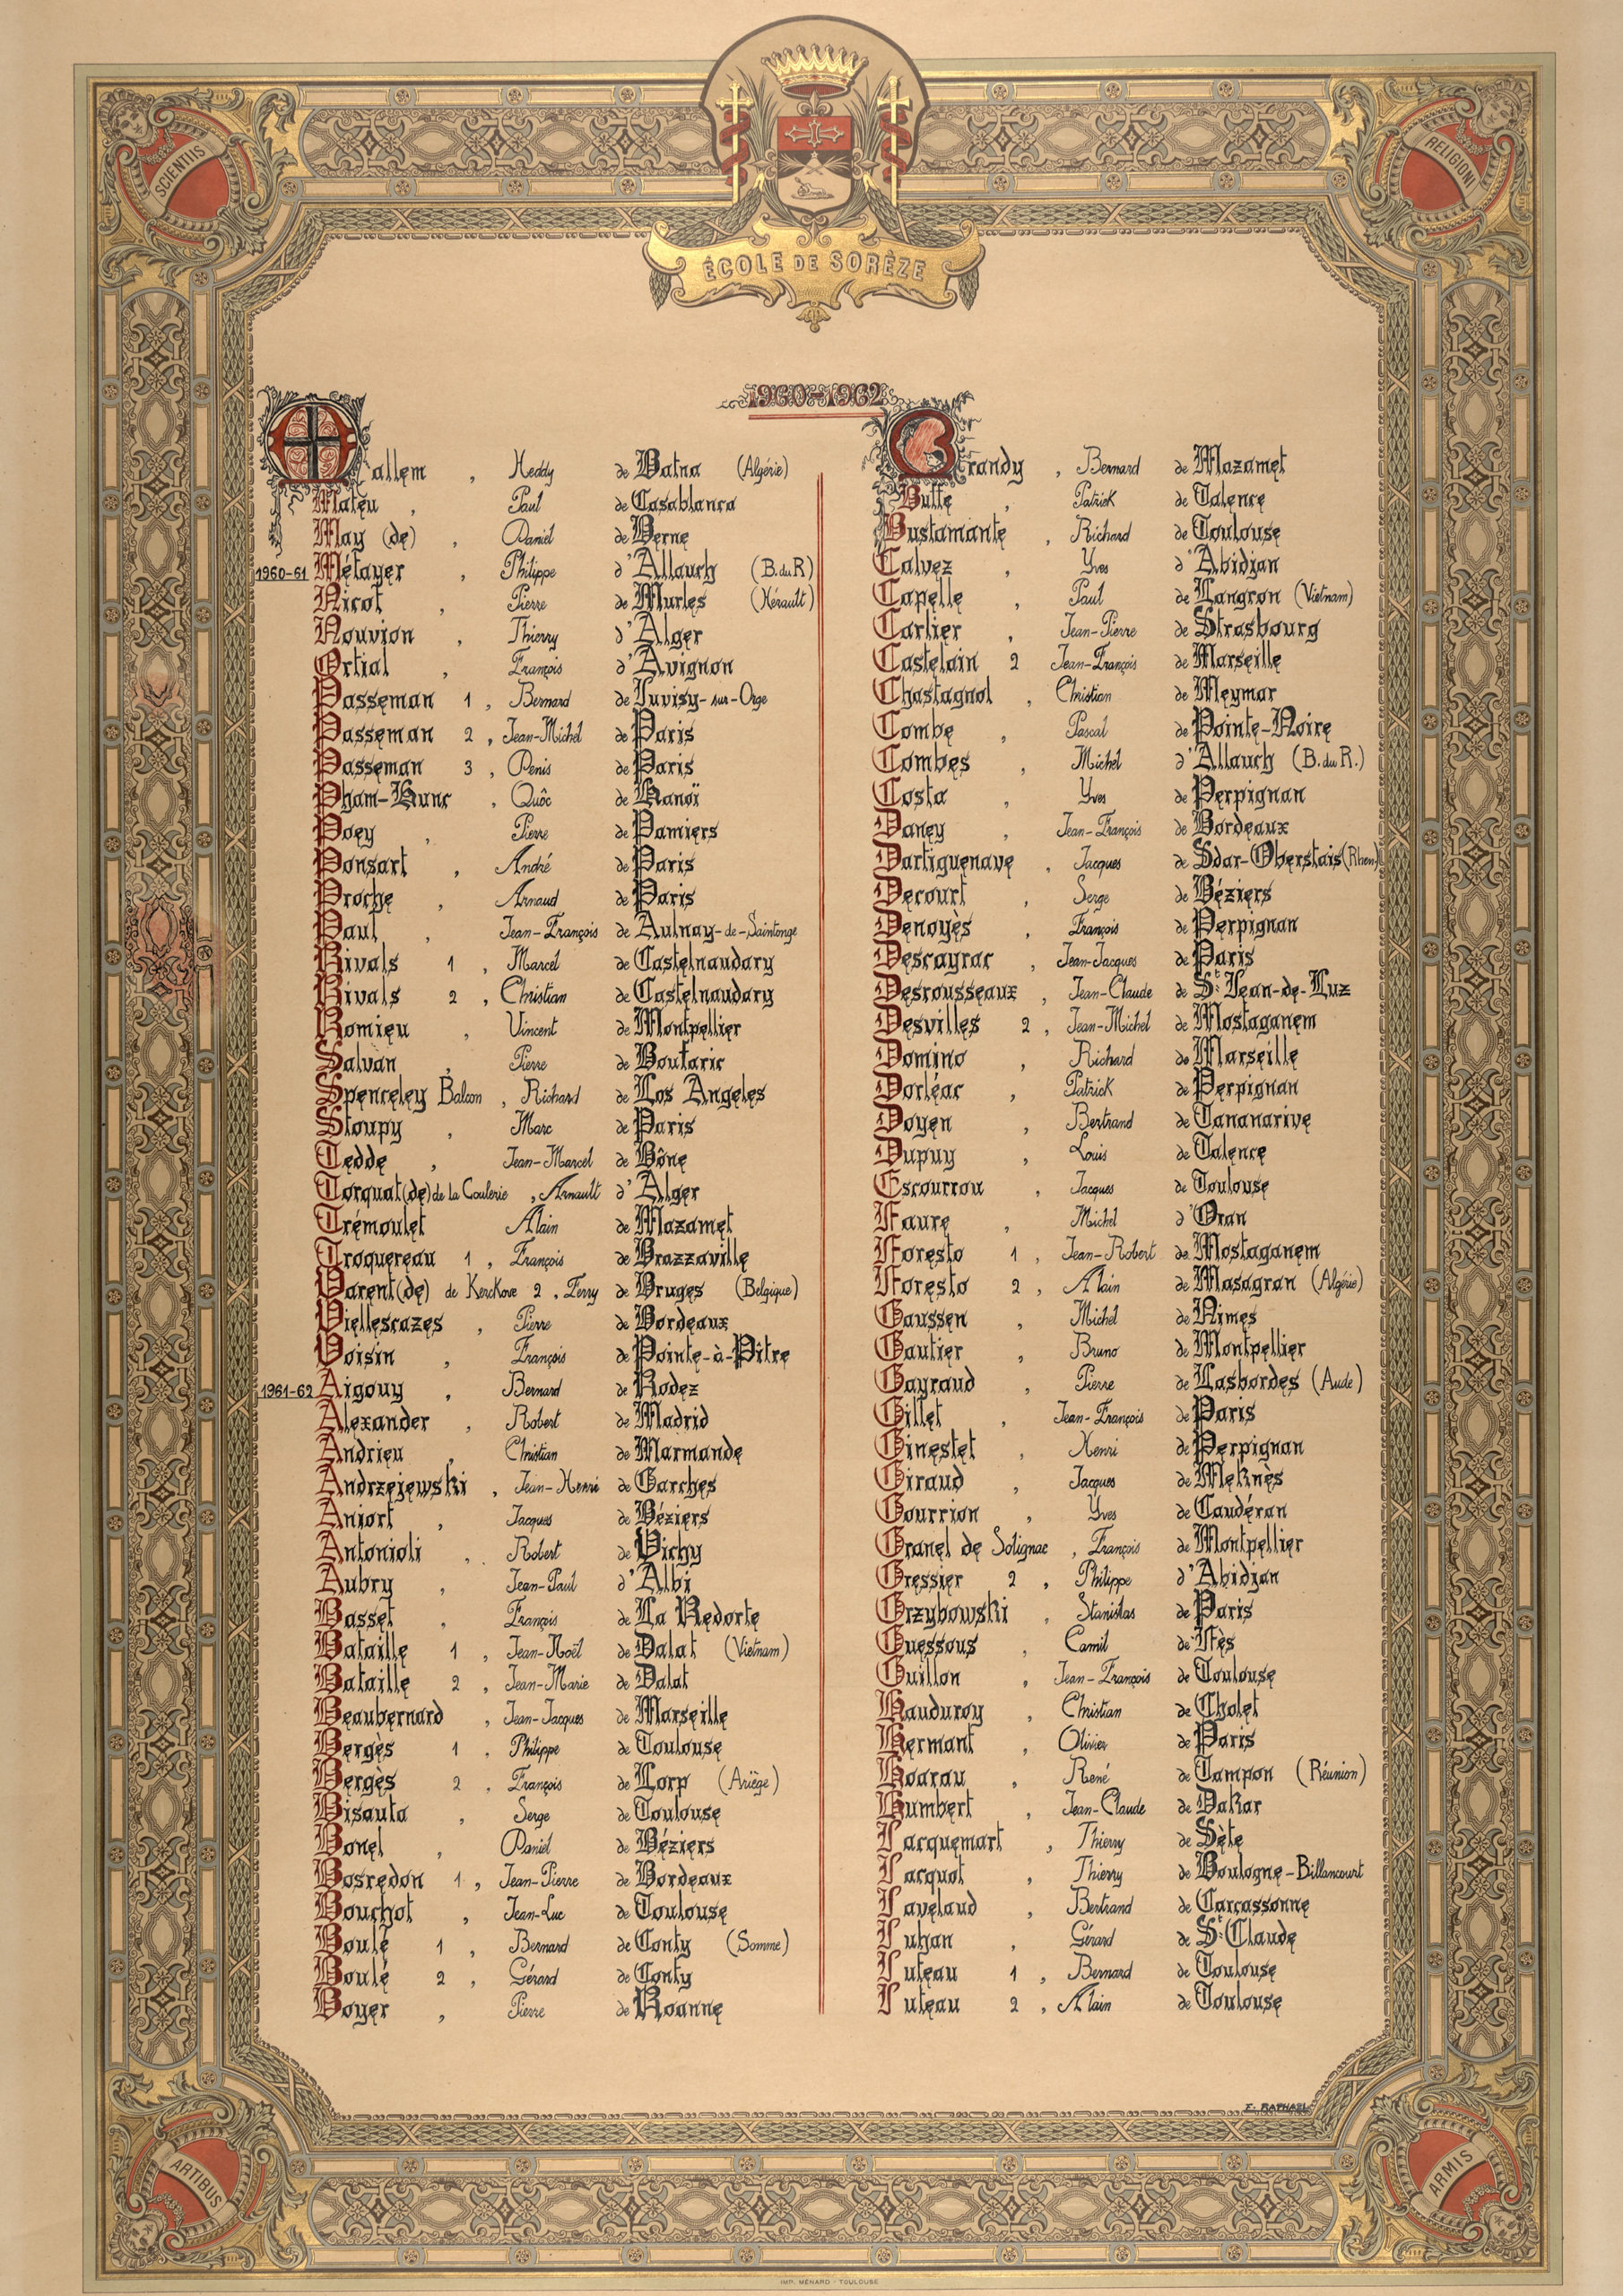 SCIENTIIS
RELIGIONI
ÉCOLE DE SORÈZE
1960-1962
Mallem, Heddy de Batna (Algérie)
Mateu, Paul de Casablanca
May (de), Daniel de Berne
1960-61 Métayer, Philippe d'Allauch (B.du R)
Nicot, Pierre de Murles (Hérault)
Nouvion, Thierry d'Alger
Ortial, François d'Avignon
Passeman 1, Bernard de Juvisy-sur-Orge
Passeman 2, Jean-Michel de Paris
Passeman 3, Denis de Paris
Pham-Hunc, Quôc de Hanoï
Poey, Pierre de Pamiers
Ponsart, André de Paris
Proche, Arnaud de Paris
Paul, Jean-François de Aulnay-de-Saintonge
Rivals 1, Marcel de Castelnaudary
Rivals 2, Christian de Castelnaudary
Romieu, Vincent de Montpellier
Salvan, Pierre de Boufaric
Spenceley Balcon, Richard de Los Angeles
Stoupy, Marc de Paris
Tedde, Jean-Marcel de Bône
Torquat (de) de la Coulerie, Arnault d'Alger
Trémoulet Alain de Mazamet
Troquereau 1, François de Brazzaville
Varent (de) de Kerckove 2, Ferry de Bruges (Belgique)
Viellescazes, Pierre de Bordeaux
Voisin, François de Pointe-à-Pitre
1961-62 Aigouy, Bernard de Rodez
Alexander, Robert de Madrid
Andrieu, Christian de Marmande
Andrzejewski, Jean-Henri de Garches
Aniort, Jacques de Béziers
Antonioli, Robert de Vichy
Aubry, Jean-Paul d'Albi
Basset, François de La Redorte
Bataille 1, Jean-Noël de Dalat (Vietnam)
Bataille 2, Jean-Marie de Dalat
Beaubernard, Jean-Jacques de Marseille
Bergès 1, Philippe de Toulouse
Bergès 2, François de Lorp (Ariège)
Bisauta, Serge de Toulouse
Bonel, Daniel de Béziers
Bosredon 1, Jean-Pierre de Bordeaux
Bouchot, Jean-Luc de Toulouse
Boulé 1, Bernard de Conty (Somme)
Boulé 2, Gérard de Conty
Boyer, Pierre de Roanne
Brandy, Bernard de Mazamet
Butte, Patrick de Talence
Bustamante, Richard de Toulouse
Calvez, Yves d'Abidjan
Capelle, Paul de Langron (Vietnam)
Cartier, Jean-Pierre de Strasbourg
Castelain 2 Jean-François de Marseille
Chastagnol, Christian de Meymar
Combe, Pascal de Pointe-Noire
Combes, Michel d'Allauch (B.du R.)
Costa, Yves de Perpignan
Daney, Jean-François de Bordeaux
Dartiguenave, Jacques de Sdar-Oberstais (Rhen)
Decourt, Serge de Béziers
Denoyès, François de Perpignan
Descayrac, Jean-Jacques de Paris
Desrousseaux, Jean-Claude de St Jean-de-Luz
Desvilles 2, Jean-Michel de Mostaganem
Domino, Richard de Marseille
Dorléac, Patrick de Perpignan
Doyen, Bertrand de Tananarive
Dupuy, Louis de Talence
Escourrou, Jacques de Toulouse
Faure, Michel d'Oran
Foresto 1, Jean-Robert de Mostaganem
Foresto 2, Alain de Masagran (Algérie)
Gaussen, Michel de Nimes
Gautier, Bruno de Montpellier
Gayraud, Pierre de Lasbordes (Aude)
Gillet, Jean-François de Paris
Ginestet, Henri de Perpignan
Giraud, Jacques de Meknès
Gourrion, Yves de Caudéran
Granel de Solignac, François de Montpellier
Gressier 2, Philippe d'Abidjan
Grzybowski, Stanislas de Paris
Guessous, Camil de Fès
Guillon, Jean-François de Toulouse
Hauduroy, Christian de Cholet
Hermant, Olivier de Paris
Hoarau, René de Tampon (Réunion)
Humbert, Jean-Claude de Dakar
Jacquemart, Thierry de Sète
Jacquot, Thierry de Boulogne-Billancourt
Javelaud, Bertrand de Carcassonne
Juhan, Gérard de St Claude
Juteau 1, Bernard de Toulouse
Juteau 2, Alain de Toulouse
E. RAPHAËL
ARTIBUS
ARMIS
IMP. MÉNARD - TOULOUSE